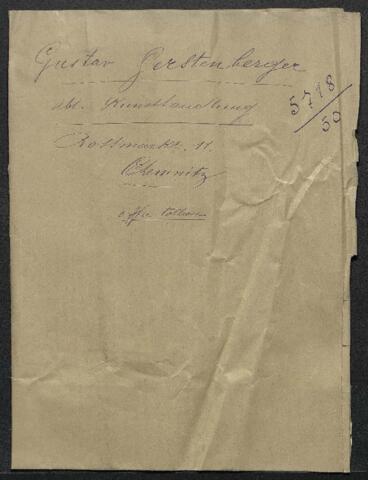 Gustav Gerstenberger
abt. Kunsthandlung
5718/50
Rossmarkt. 11.
Chemnitz